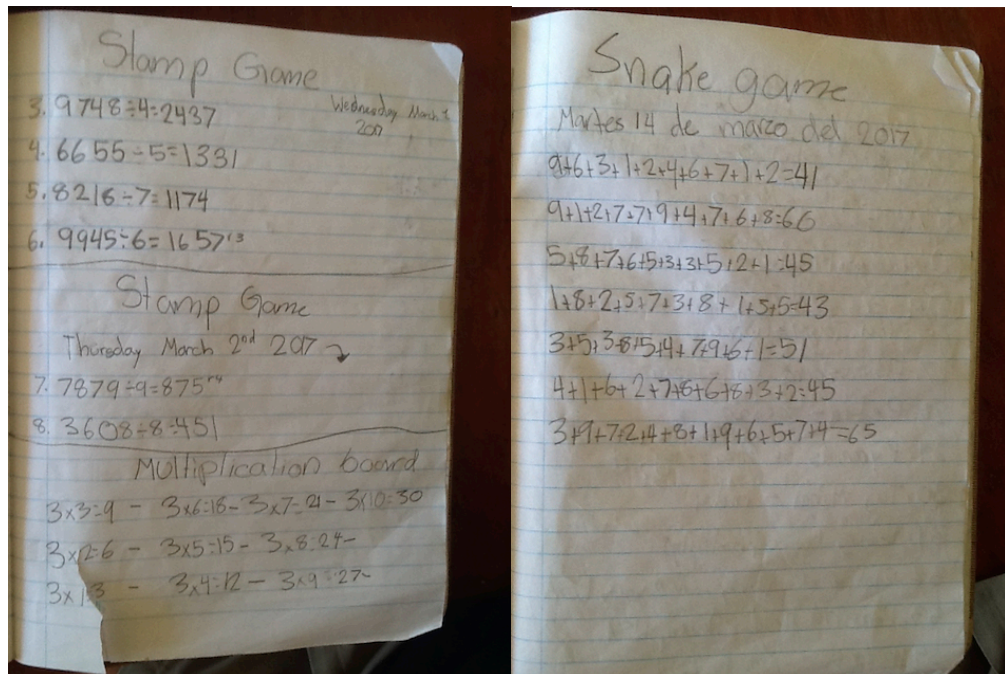 Stamp Game
Wednesday March 1
2017
3. 9748÷4=2437
4. 6655÷5=1331
5. 8216÷7=1174
6. 9945÷6=1657r3
Stamp Game
Thursday March 2nd 2017
7. 7879÷9=875r4
8. 3608÷8=451
Multiplication board
3x3=9 - 3x6=18- 3x7=21- 3x10=30
3x2=6 - 3x5=15- 3x8=24-
3x1=3 - 3x4=12- 3x9=27-
Snake game
Martes 14 de marzo del 2017
9+6+3+1+2+4+6+7+1+2=41
9+1+2+7+7+9+4+7+6+8=60
5+8+7+6+5+3+3+5+2+1=45
1+8+2+5+7+3+8+1+5+5=43
3+5+3+8+5+4+7+9+6+1=51
4+1+6+2+7+8+6+8+3+2=45
3+9+7+2+4+8+1+9+6+5+7+4=65